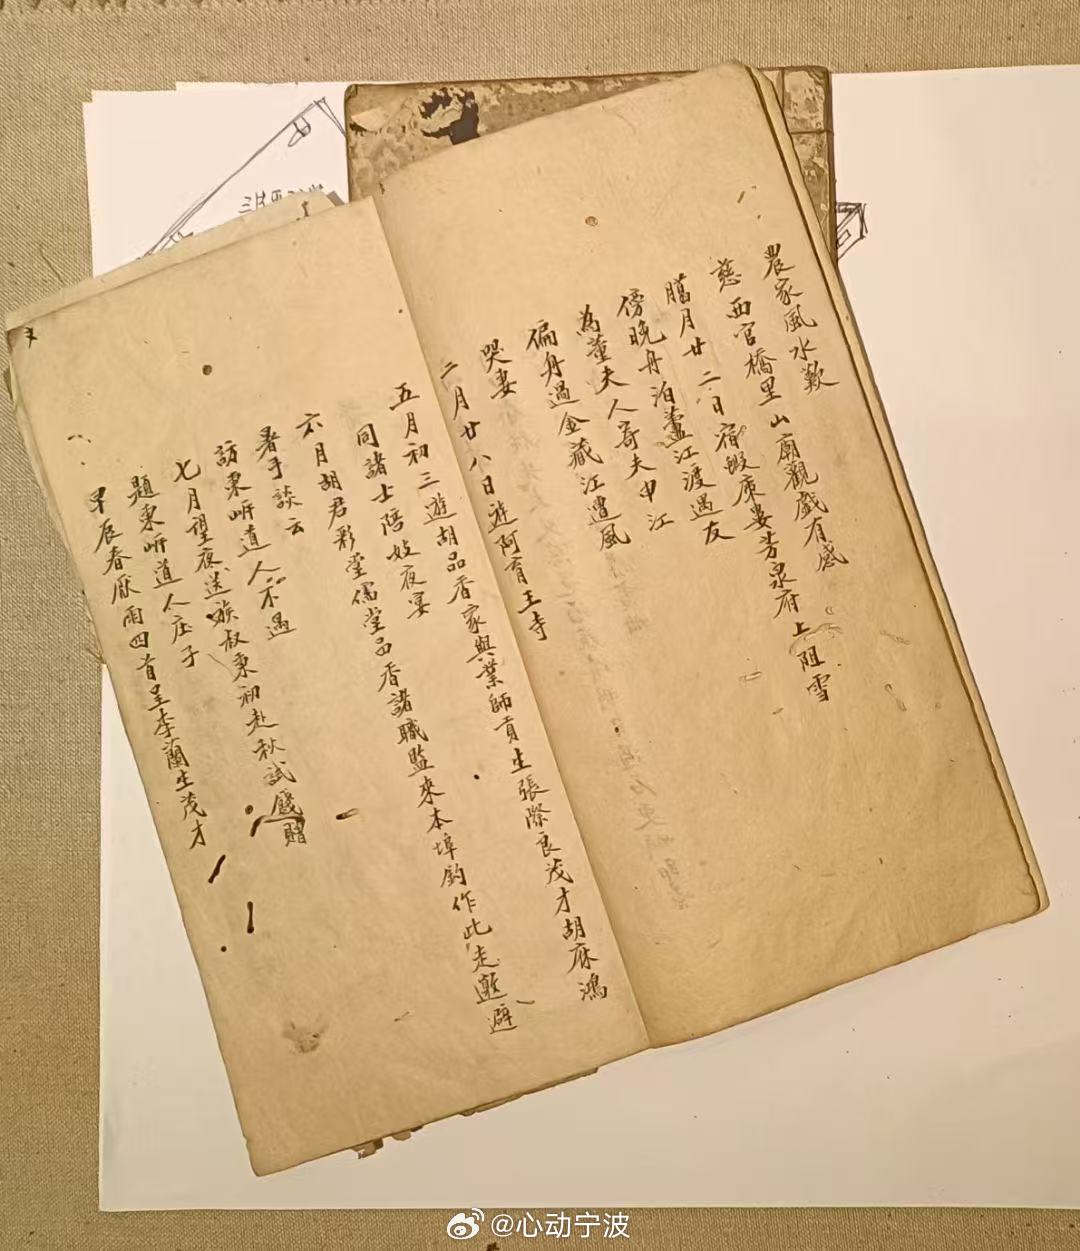 農家風水歎
慈西官橋里山廟觀戲有感
臘月廿二日宿蝦康婁芳泉府上阻雪
傍晚舟泊蘆江渡遇友
為董夫人寄夫申江
偏舟過金藏江遭風
哭妻
二月廿八日遊阿育王寺
五月初三遊胡品香家與業師貢生張際良茂才胡庥鴻
同諸士陪妓夜宴
六月胡君彩堂儒堂品香諸職監來本埠釣作此走邀避
暑手談云
訪東岍道人不遇
七月望夜送族叔秉初赴秋試餞賭
題東岍道人庄子
甲辰春厭雨四首呈李蘭生茂才
@心动宁波